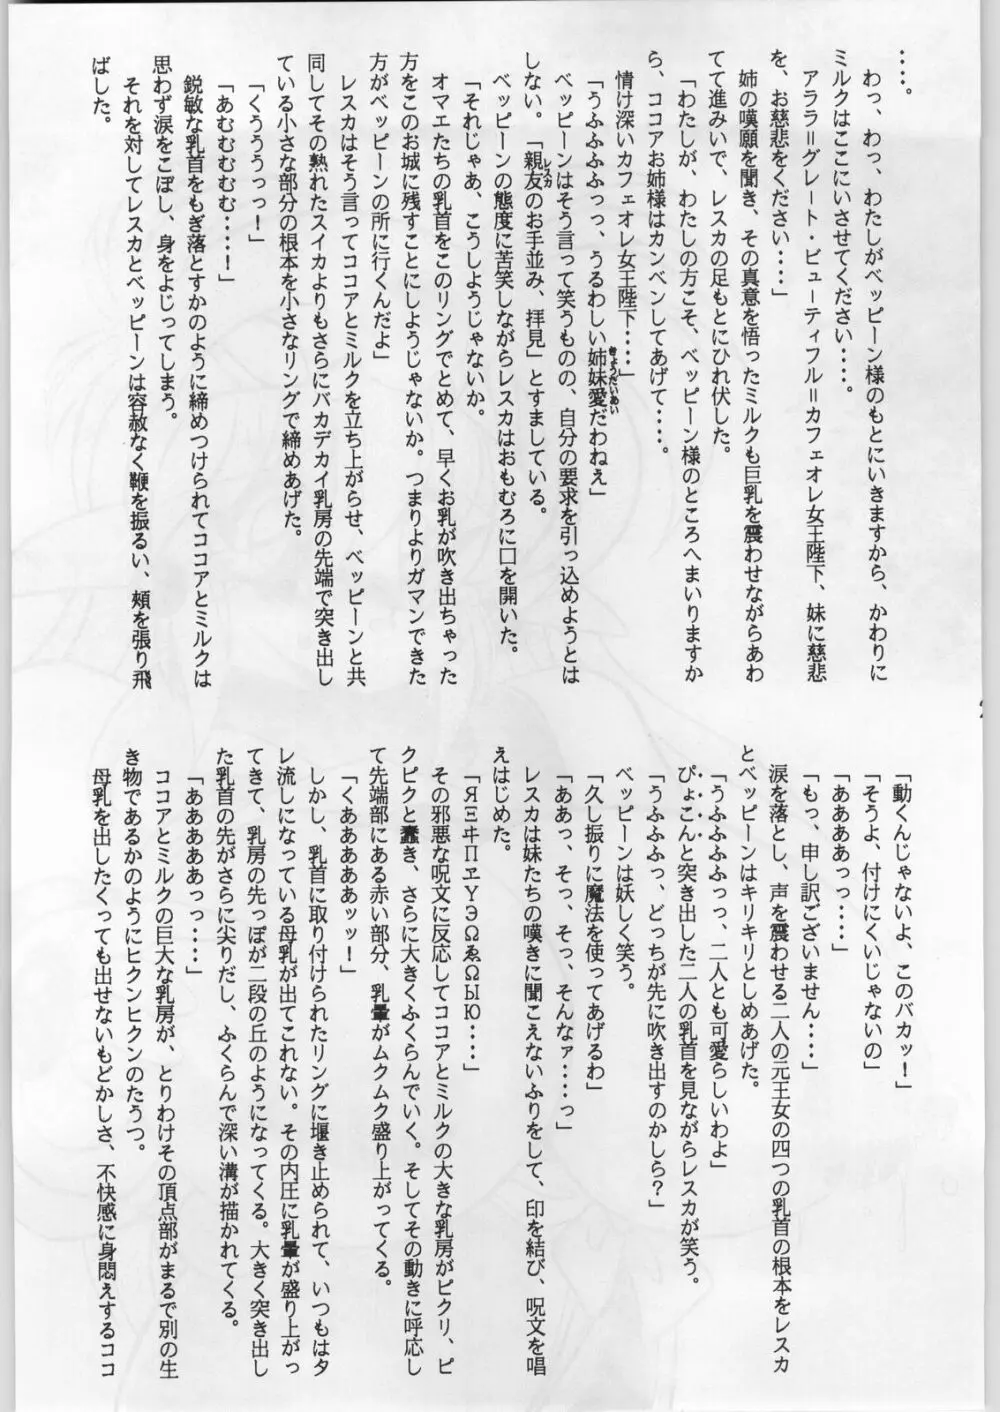 ‥‥。
わっ、わっ、わたしがベッピーン様のもとにいきますから、かわりに
ミルクはここにいさせてください‥‥。
アララ＝グレート・ビューティフル＝カフェオレ女王陛下、妹に慈悲
を、お慈悲をください‥‥」
姉の嘆願を聞き、その真意を悟ったミルクも巨乳を震わせながらあわ
てて進みいで、レスカの足もとにひれ伏した。
「わたしが、わたしの方こそ、ベッピーン様のところへまいりますか
ら、ココアお姉様はカンベンしてあげて‥‥。
情け深いカフェオレ女王陛下‥‥」
「うふふふふっっ、うるわしい姉妹愛きょうだいあいだわねぇ」
ベッピーンはそう言って笑うものの、自分の要求を引っ込めようとは
しない。「親友レスカのお手並み、拝見」とすましている。
ベッピーンの態度に苦笑しながらレスカはおもむろに口を開いた。
「それじゃあ、こうしようじゃないか。
オマエたちの乳首をこのリングでとめて、早くお乳が吹き出ちゃった
方をこのお城に残すことにしようじゃないか。つまりよりガマンできた
方がベッピーンの所に行くんだよ」
レスカはそう言ってココアとミルクを立ち上がらせ、ベッピーンと共
同してその熟れたスイカよりもさらにバカデカイ乳房の先端で突き出し
ている小さな部分の根本を小さなリングで締めあげた。
「くうううっっ！」
「あむむむむ‥‥！」
鋭敏な乳首をもぎ落とすかのように締めつけられてココアとミルクは
思わず涙をこぼし、身をよじってしまう。
それを対してレスカとベッピーンは容赦なく鞭を振るい、頬を張り飛
ばした。
「動くんじゃないよ、このバカッ！」
「そうよ、付けにくいじゃないの」
「ああああっっ‥‥」
「もっ、申し訳ございません‥‥」
涙を落とし、声を震わせる二人の元王女の四つの乳首の根本をレスカ
とベッピーンはキリキリとしめあげた。
「うふふふふっっ、二人とも可愛らしいわよ」
ぴょこんと突き出した二人の乳首を見ながらレスカが笑う。
「うふふふっ、どっちが先に吹き出すのかしら？」
ベッピーンは妖しく笑う。
「久し振りに魔法を使ってあげるわ」
「ああっ、そっ、そっ、そんなァ‥‥っ」
レスカは妹たちの嘆きに聞こえないふりをして、印を結び、呪文を唱
えはじめた。
「ЯΞヰПヱΥЭΩゑΩЫЮ‥‥」
その邪悪な呪文に反応してココアとミルクの大きな乳房がピクリ、ピ
クピクと蠢き、さらに大きくふくらんでいく。そしてその動きに呼応し
て先端部にある赤い部分、乳暈がムクムク盛り上がってくる。
「くあああああッッ！」
しかし、乳首に取り付けられたリングに堰き止められて、いつもはタ
レ流しになっている母乳が出てこれない。その内圧に乳暈が盛り上がっ
てきて、乳房の先っぽが二段の丘のようになってくる。大きく突き出し
た乳首の先がさらに尖りだし、ふくらんで深い溝が描かれてくる。
「ああああああっっ‥‥」
ココアとミルクの巨大な乳房が、とりわけその頂点部がまるで別の生
き物であるかのようにヒクンヒクンのたうつ。
母乳を出したくっても出せないもどかしさ、不快感に身悶えするココ